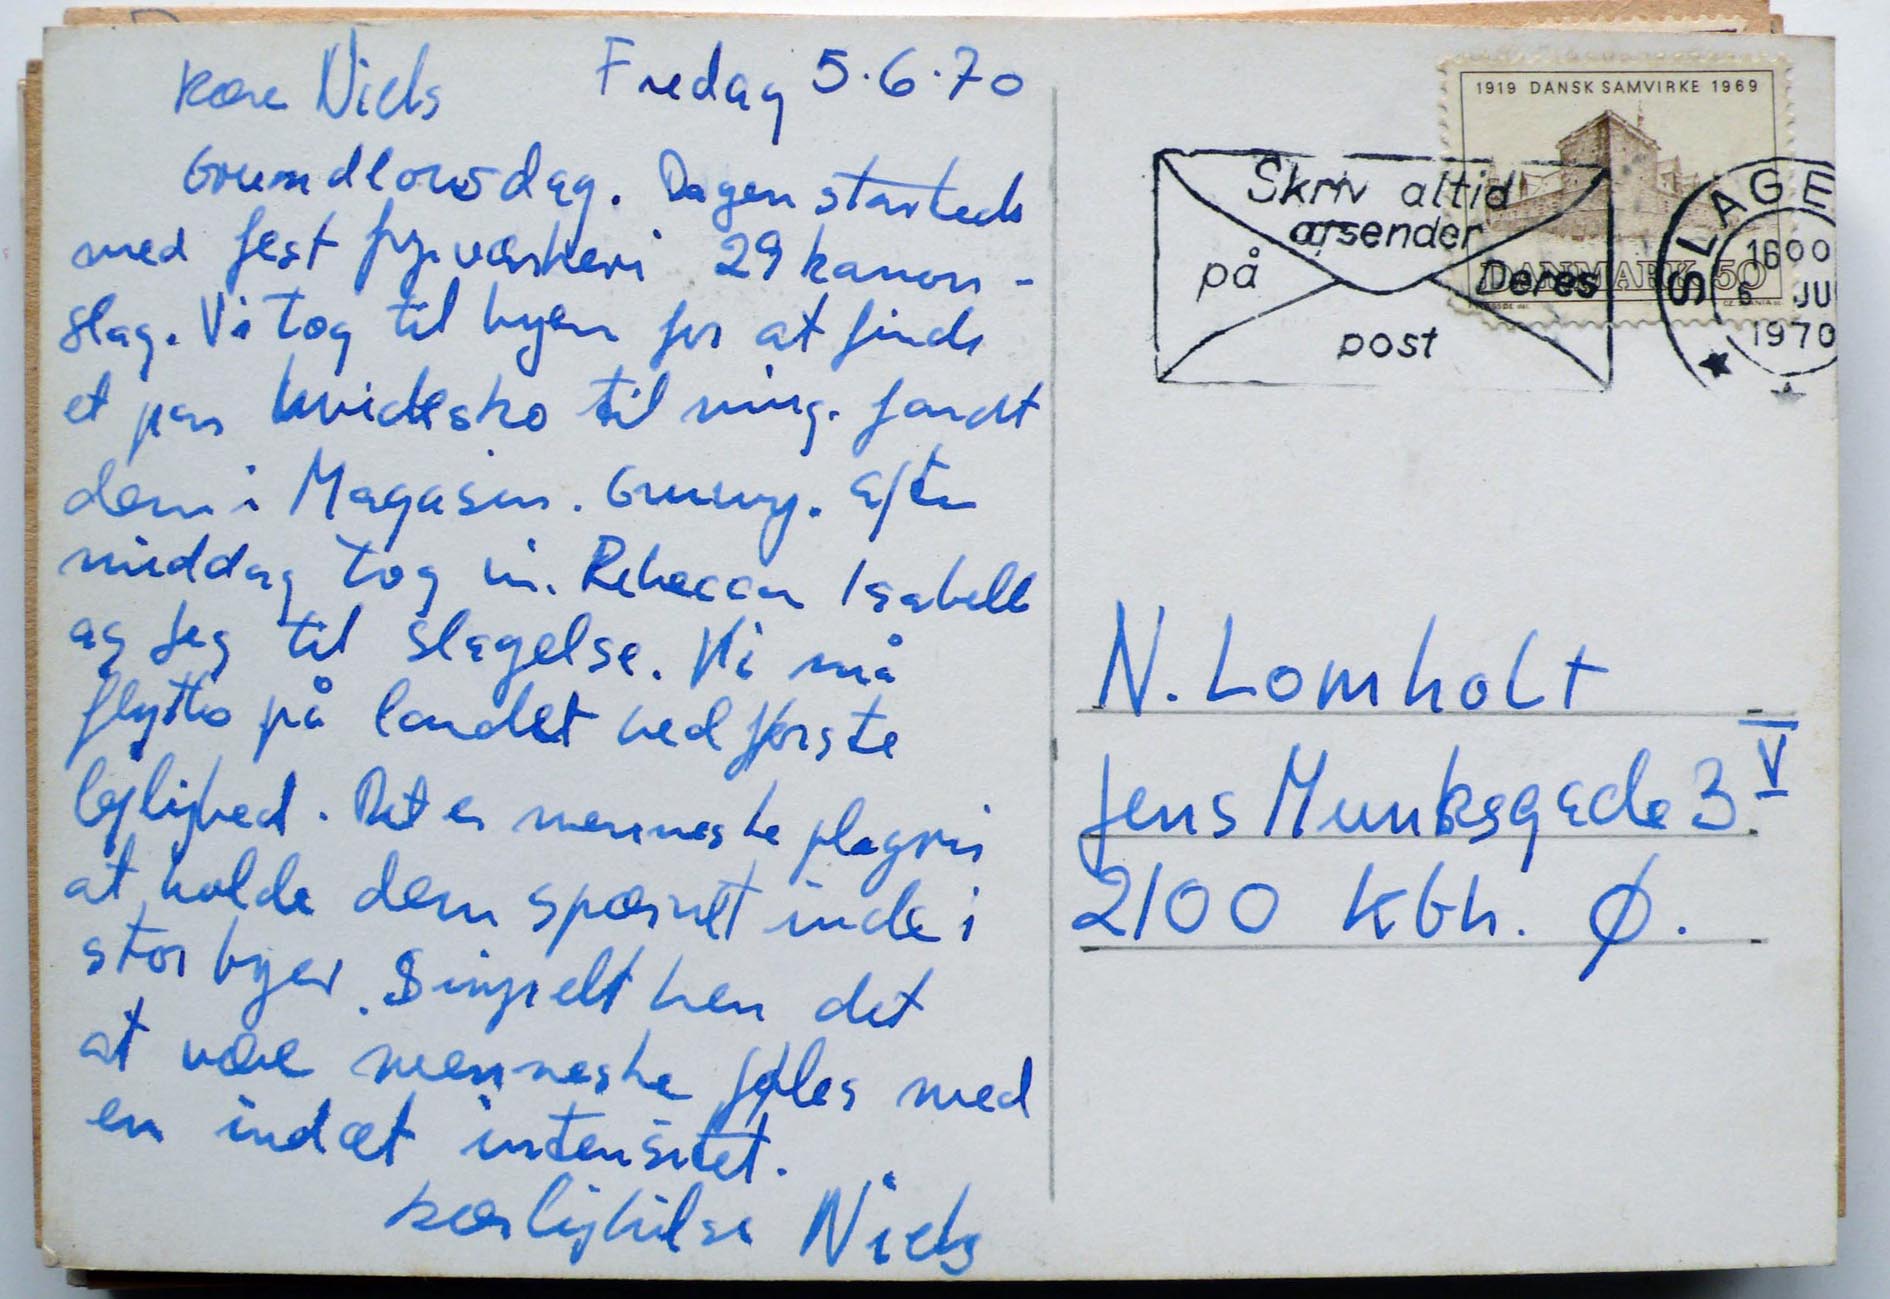 Kære Niels Fredag 5.6.70
Grundlovsdag. Dagen startede
med fest fyrværkeri 29 kanon-
slag. Vi tog til byen for at finde
et par hvidesko til ming. fandt
dem i Magasin. Efter
middag tog vi. Rebecca Isabell
og Jeg til Slagelse. Vi må
flytte på landet ved første
lejlighed. Det er menneske plageri
at holde dem spærret inde i
stor byer. Simpelt hen det
at være menneske føles med
en indæt intensitet.
kærlighilse Niels
1919 DANSK SAMVIRKE 1969
DANMARK 50
Skriv altid
afsender
på Deres
post
SLAGE
1600
6 JU
1970
N. Lomholt
Jens Munksgade 3 V
2100 Kbh. Ø.